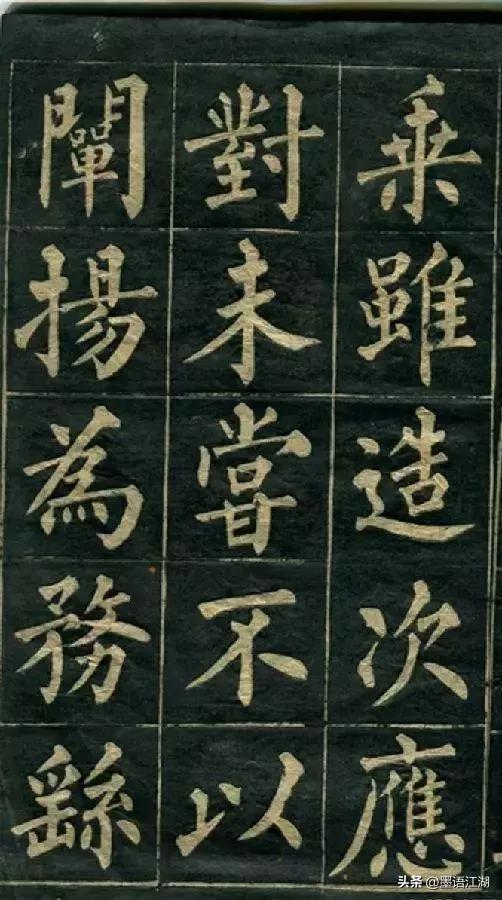 乘雖造次應
對未嘗不以
闡揚為務繇
头条 @墨语江湖